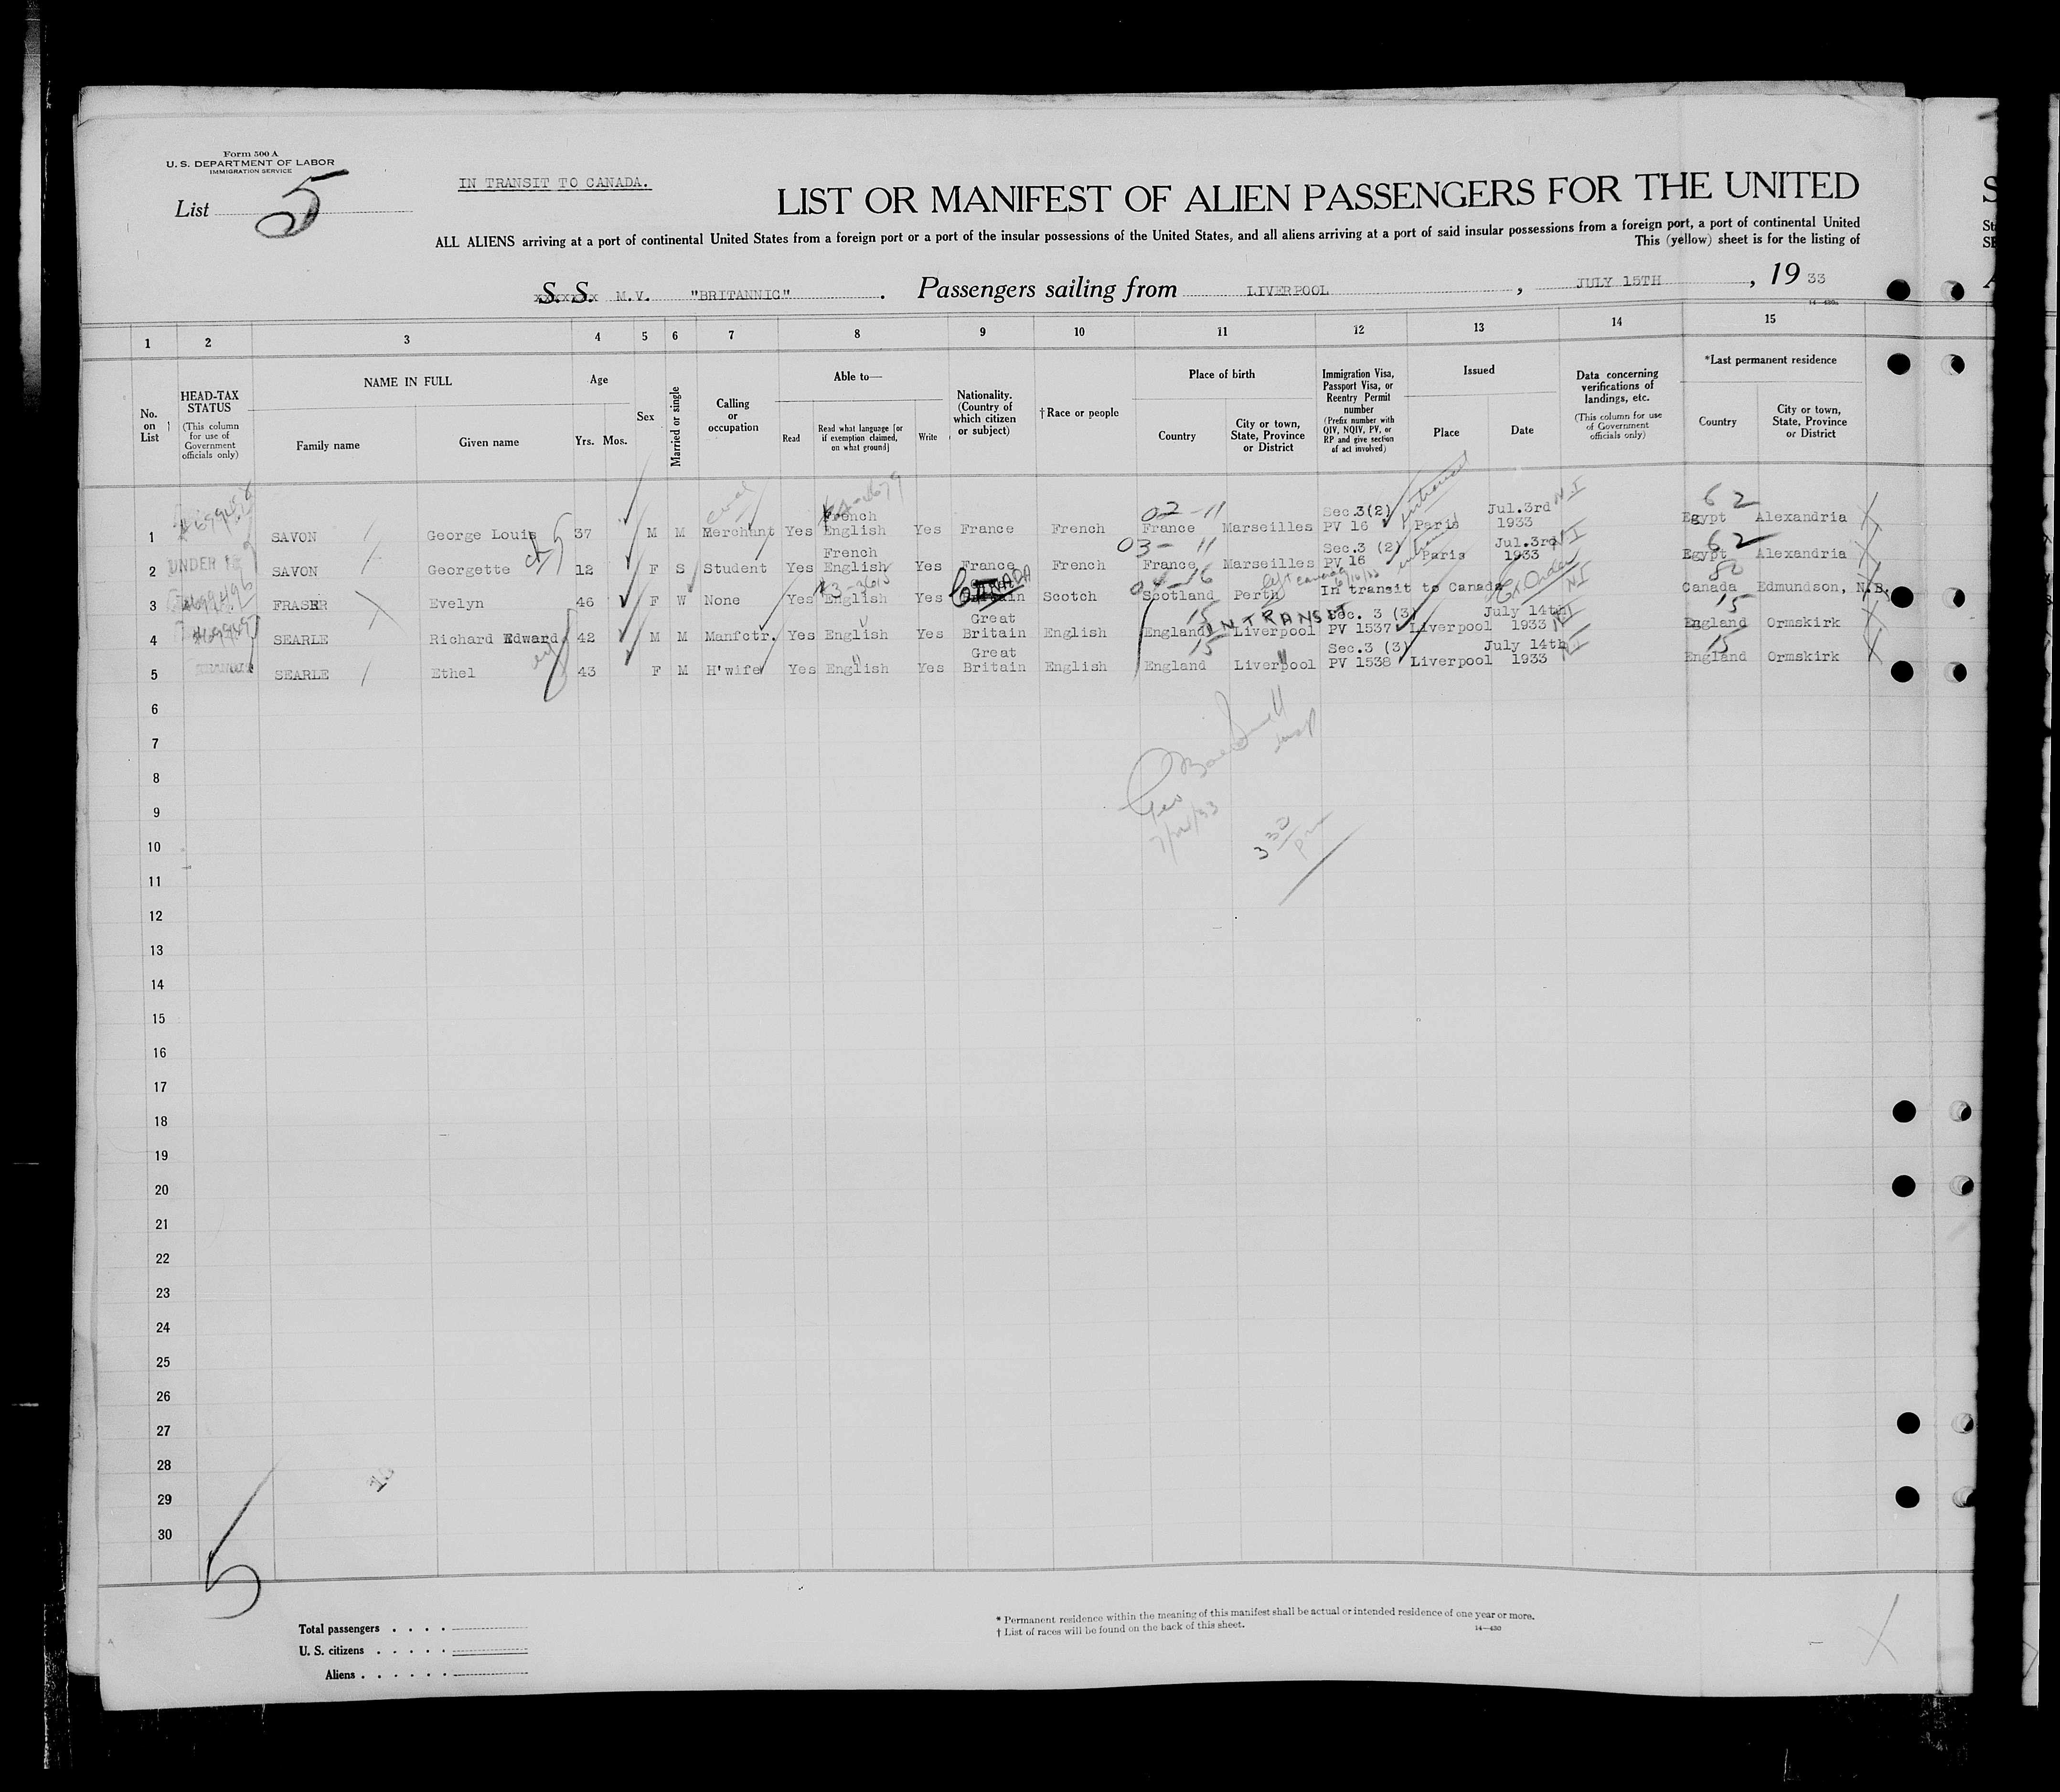 Form 500 A
U. S. DEPARTMENT OF LABOR
IMMIGRATION SERVICE
List 5
IN TRANSIT TO CANADA.
LIST OR MANIFEST OF ALIEN PASSENGERS FOR THE UNITED
ALL ALIENS arriving at a port of continental United States from a foreign port or a port of the insular possessions of the United States, and all aliens arriving at a port of said insular possessions from a foreign port, a port of continental United
This (yellow) sheet is for the listing of
S. S. M.V. "BRITANNIC". Passengers sailing from LIVERPOOL, JULY 15TH, 19 33
1 2 3 4 5 6 7 8 9 10 11 12 13 14 15
No. on List
HEAD-TAX STATUS (This column for use of Government officials only)
NAME IN FULL
Family name Given name
Age
Yrs. Mos.
Sex
Married or single
Calling or occupation
Able to—
Read Read what language [or if exemption claimed, on what ground] Write
Nationality. (Country of which citizen or subject)
†Race or people
Place of birth
Country City or town, State, Province or District
Immigration Visa, Passport Visa, or Reentry Permit number (Prefix number with QIV, NQIV, PV, or RP and give section of act involved)
Issued
Place Date
Data concerning verifications of landings, etc. (This column for use of Government officials only)
*Last permanent residence
Country City or town, State, Province or District
1 SAVON George Louis 37 M M Merchant Yes French English Yes France French 02-11 France Marseilles Sec.3(2) PV 16 Paris Jul.3rd 1933 NI 62 Egypt Alexandria
2 UNDER 16 SAVON Georgette 12 F S Student Yes French English Yes France French 03-11 France Marseilles Sec.3 (2) PV 16 Paris Jul.3rd 1933 NI 62 Egypt Alexandria
3 FRASER Evelyn 46 F W None Yes English Yes CANADA Scotch 04-16 Scotland Perth In transit to Canada NI Canada Edmundson, N.B.
4 SEARLE Richard Edward 42 M M Manfctr. Yes English Yes Great Britain English 15 England Liverpool IN TRANSIT Sec. 3 (3) PV 1537 Liverpool July 14th 1933 NI 15 England Ormskirk
5 SEARLE Ethel 43 F M H'wife Yes English Yes Great Britain English 15 England Liverpool Sec.3 (3) PV 1538 Liverpool July 14th 1933 NI 15 England Ormskirk
6
7
8
9
10
11
12
13
14
15
16
17
18
19
20
21
22
23
24
25
26
27
28
29
30
3 30 pm
5
Total passengers . . . .
U. S. citizens . . . . .
Aliens . . . . . .
* Permanent residence within the meaning of this manifest shall be actual or intended residence of one year or more.
† List of races will be found on the back of this sheet.
14—430